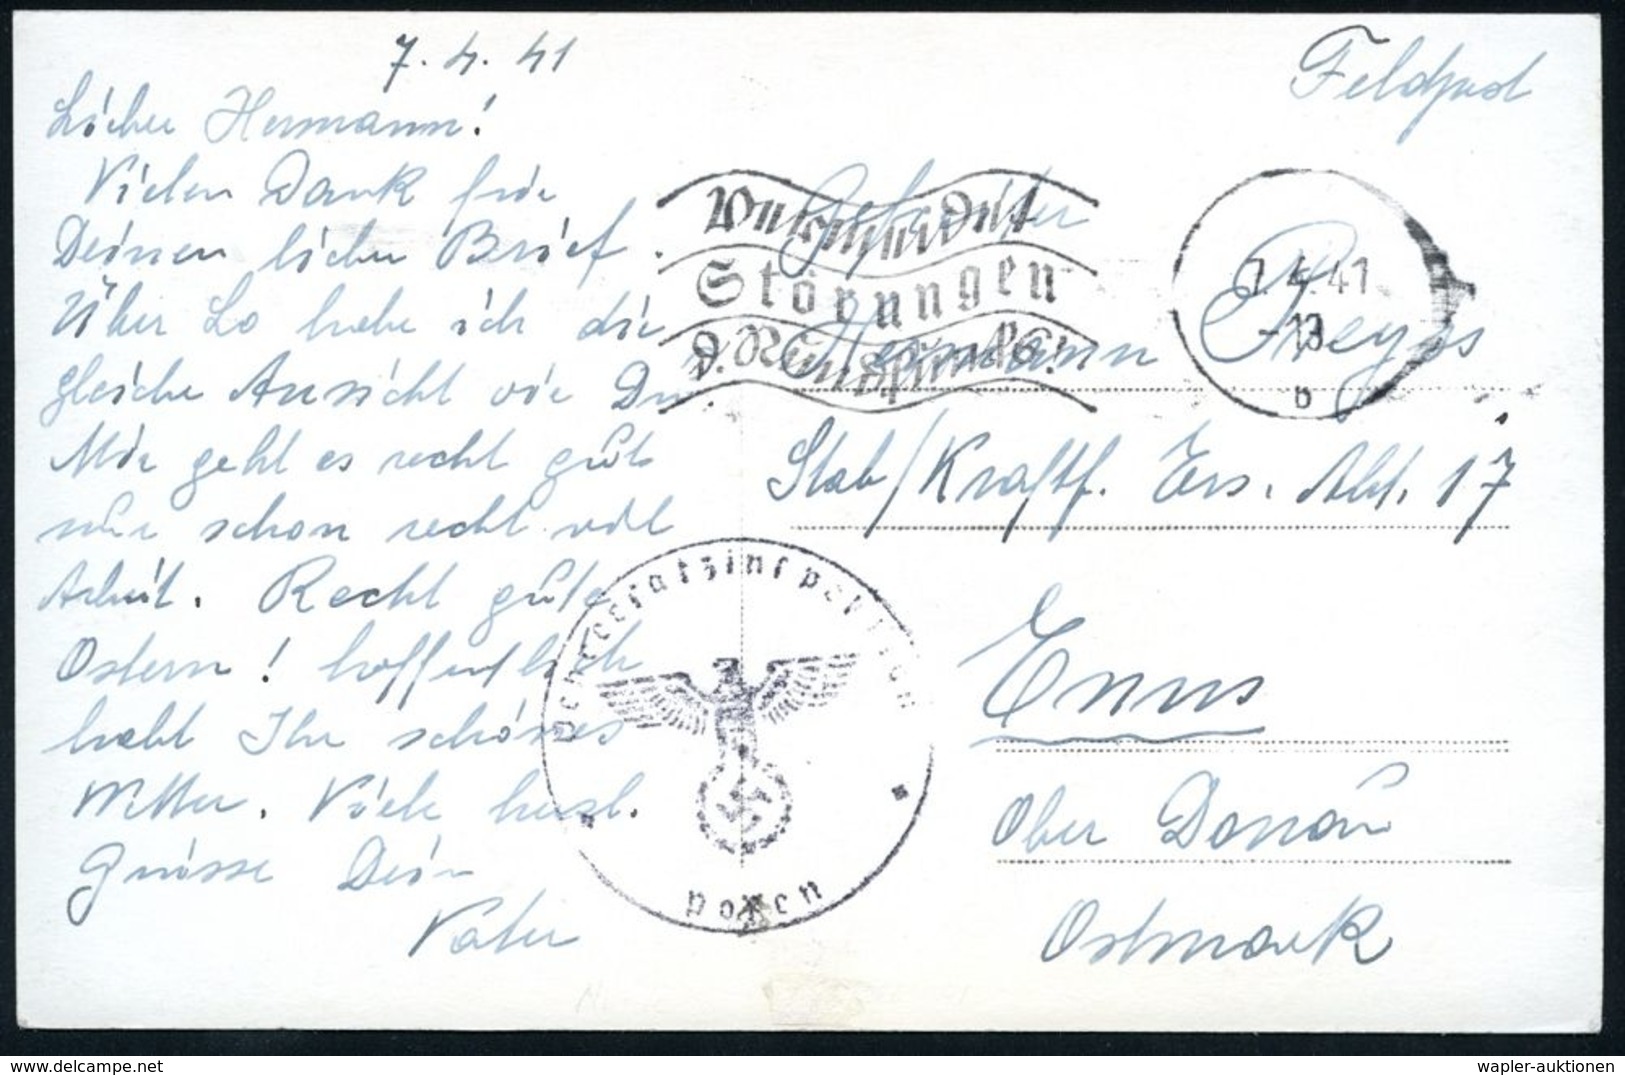 7.4.41
Lieber Hermann!
Vielen Dank für
Deinen lieben Brief.
Über Lo habe ich die
gleiche Ansicht wie Du.
Mir geht es recht gut
nur schon recht viel
Arbeit. Recht gute
Ostern! hoffentlich
habt Ihr schönes
Wetter. Viele herzl.
Grüsse Dein
Vater
Feldpost
Gefreiter
Hermann
Stab/Kraftf. Ers. Abt. 17
Enns
Ober Donau
Ostmark
Störungen
d. Rundfunks!
7.4.41
-13
b
Wehrersatzinspektion
Posen
wapler-auktionen